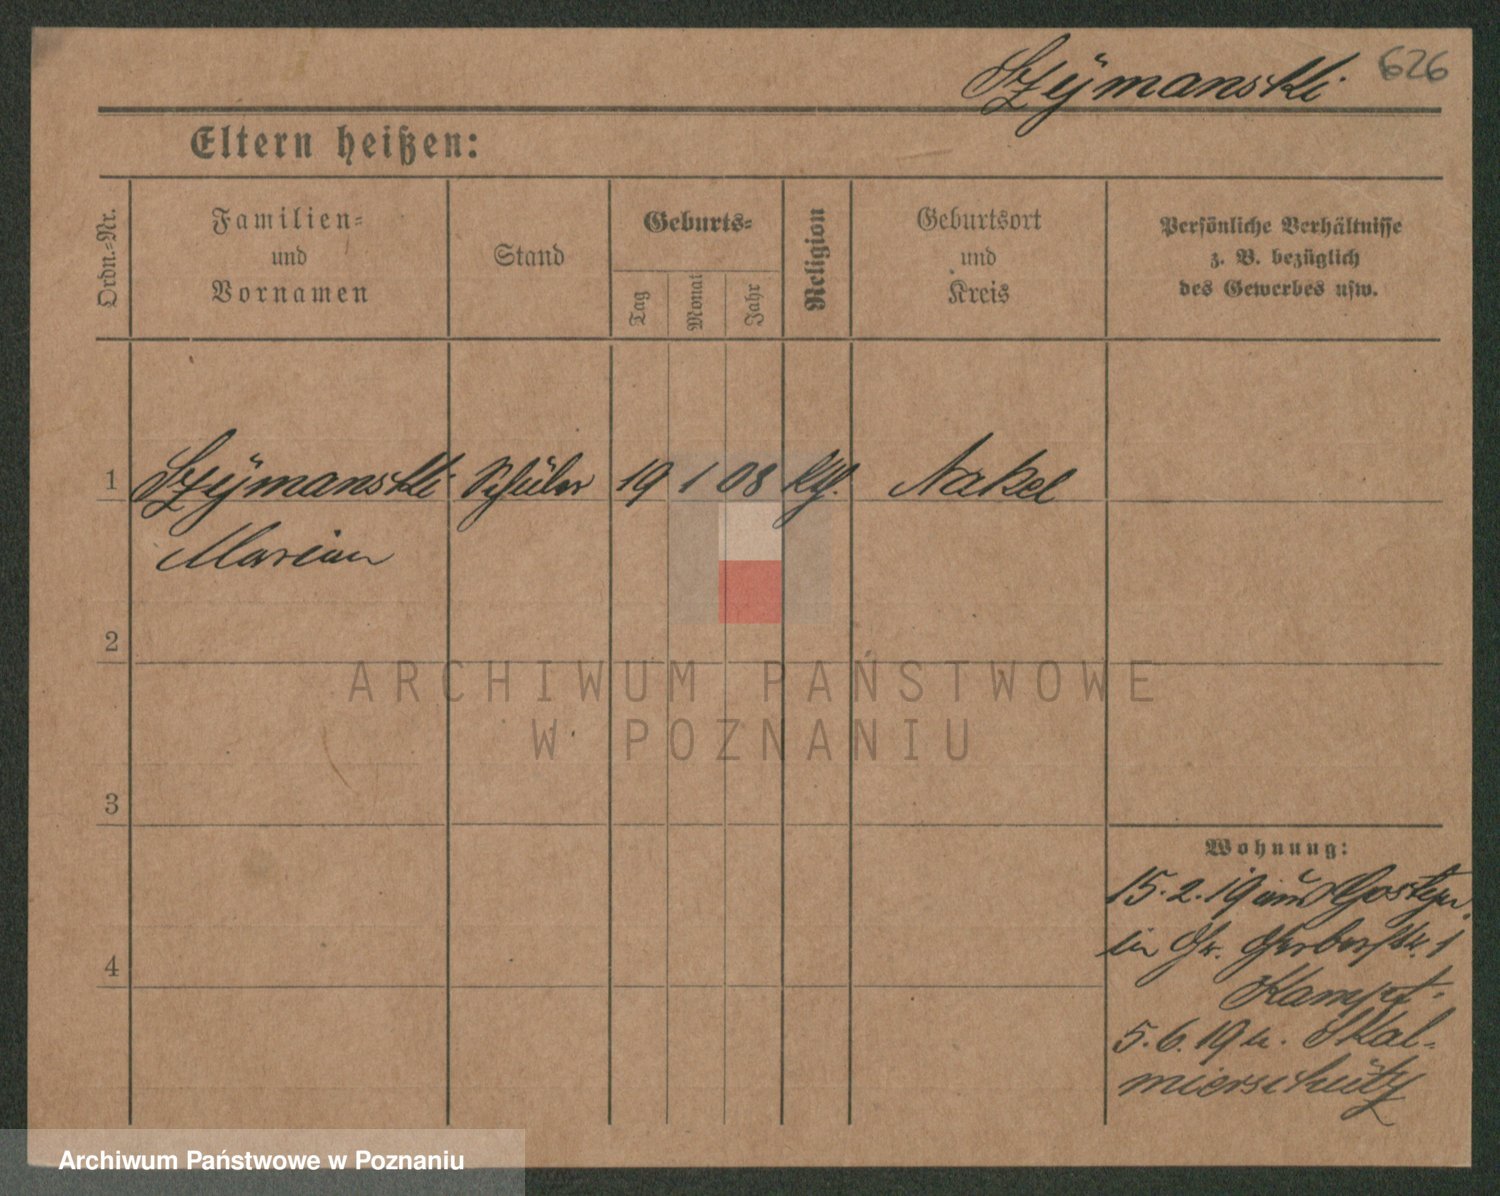 Szÿmanski 626
Eltern heißen:
Ordn.-Nr.
Familien- und Vornamen
Stand
Geburts-
Tag
Monat
Jahr
Religion
Geburtsort und Kreis
Persönliche Verhältnisse
z. B. bezüglich
des Gewerbes usw.
1 Szÿmanski Schüler 19 1 08 kth. Nakel
Marian
2
3
4
Wohnung:
15.2.19 aus Gostyn
in Gr. Gerberstr. 1
5.6.19 n. Skal-
mierschütz
ARCHIWUM PAŃSTWOWE
W POZNANIU
Archiwum Państwowe w Poznaniu